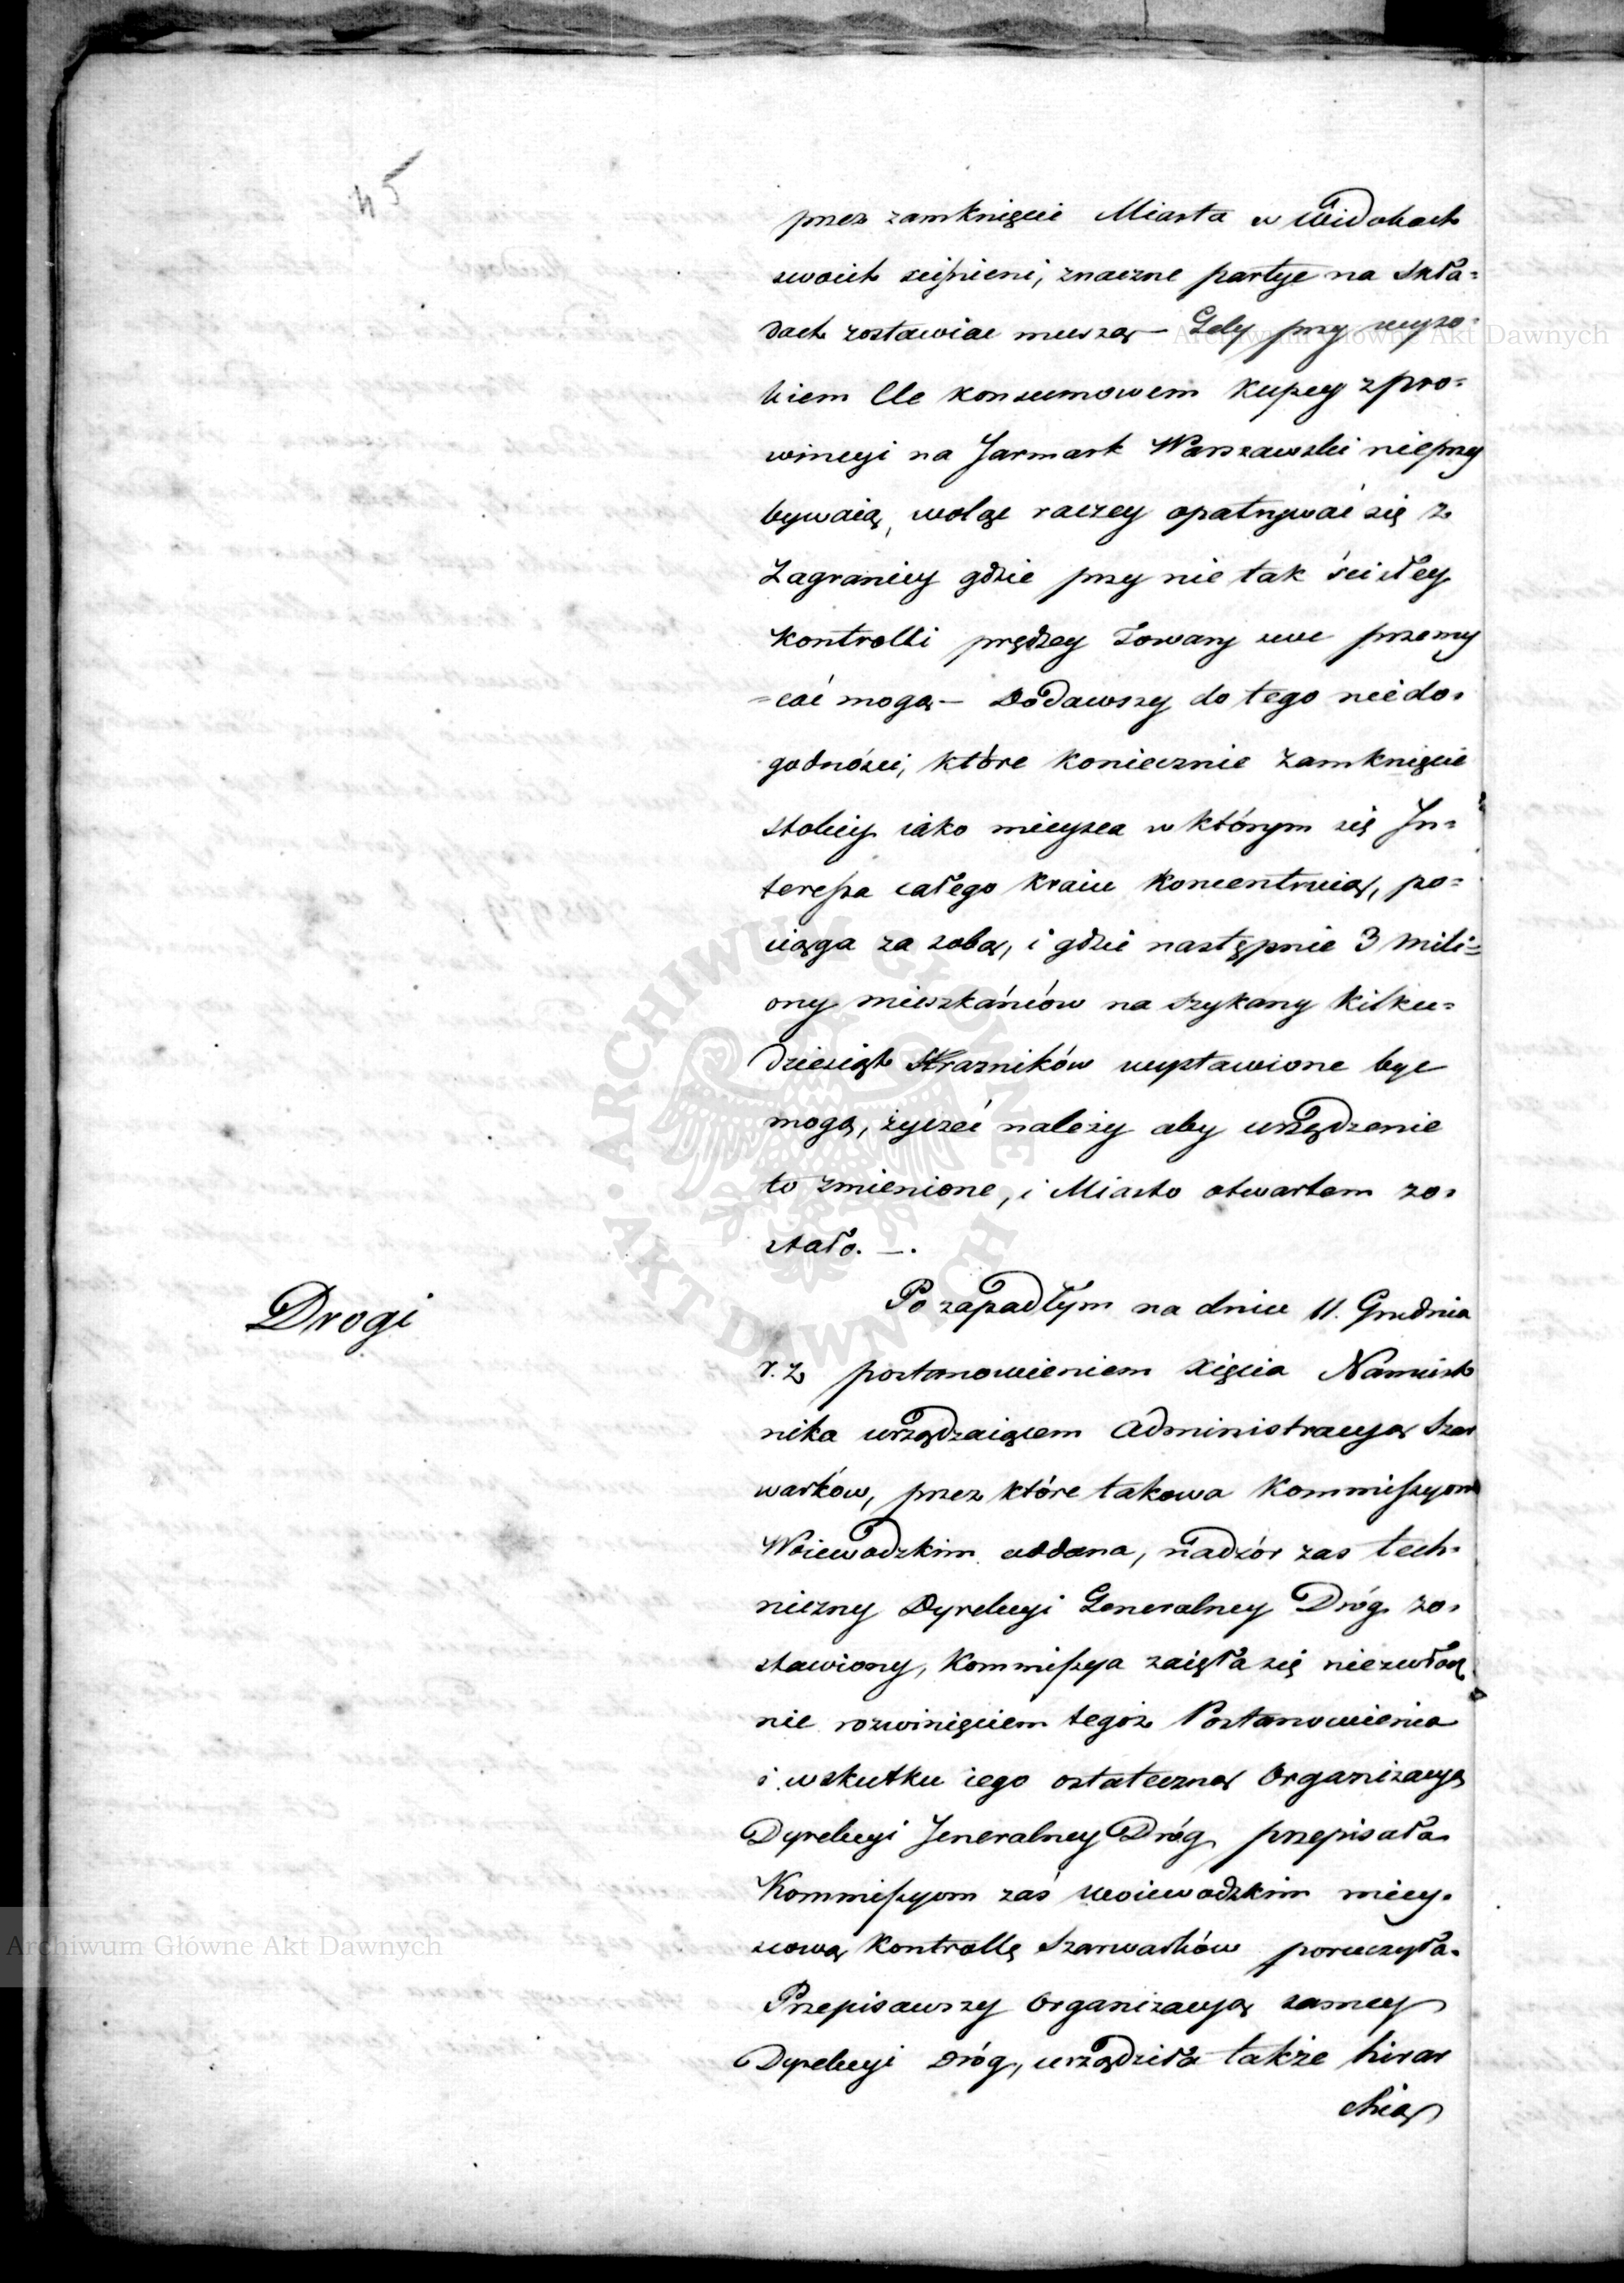 45
przez zamknięcie Miasta w Widokach
swoich scisnieni, znaczne partye na Skła=
dach zostawiac muszą — Gdy przy wyso=
kiem Cle konsumowem Kupcy z pro=
wincyi na Jarmark Warszawski nieprzy
bywaią, wolą raczey opatrywać się z
Zagranicy gdzie przy nie tak ścisłey
Kontrolli prędzey Towary swe przemy
=cać mogą — Dodawszy do tego niedo=
godności, które koniecznie Zamknięcie
Stolicy iako mieysca w którym się In=
teressa całego kraiu koncentruią, po=
ciąga za sobą, i gdzie następnie 3 mili=
ony mieszkańców na szykany kilku=
dziesiąt Strazników wystawione byc
mogą, życzeć należy aby urządzenie
to zmienione, i Miasto otwartem zo=
stało. —.
Drogi
Po zapadłym na dniu 11. Grudnia
r. z postanowieniem Xięcia Namiest
nika urządzaiącem Administracyą Szar
warków, przez które takowa Kommissyom
Woiewodzkim oddana, nadzór zas tech=
niczny Dyrekcyi Generalney Dróg zo=
stawiony, Kommissya zaięła się niezwłocz
nie rozwinięciem tegoż Postanowienia
i wskutku iego ostateczną Organizacyą
Dyrekcyi Jeneralney Dróg przepisała
Kommissyom zaś Woiewodzkim miey=
scową Kontrollę Szarwarków poruczyła.
Przepisawszy Organizacyą samey
Dyrekcyi Dróg, urządziła także hirar
chią
Archiwum Główne Akt Dawnych
Archiwum Główne Akt Dawnych
ARCHIWUM GŁÓWNE · AKT DAWNYCH ·